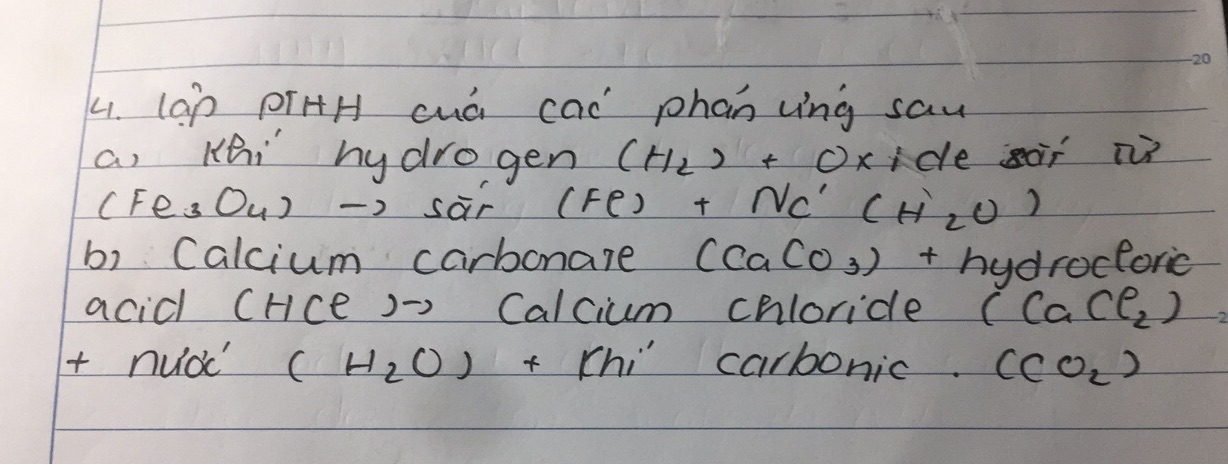 20
4. lập PTHH của các phản ứng sau
a) Khí hydrogen (H₂) + Oxide sắt từ
(Fe₃O₄) -> sắt (Fe) + Nc' (H₂O)
b) Calcium carbonate (CaCO₃) + hydrocloric
acid (HCl) -> Calcium chloride (CaCl₂)
+ nước (H₂O) + Khí carbonic. (CO₂)